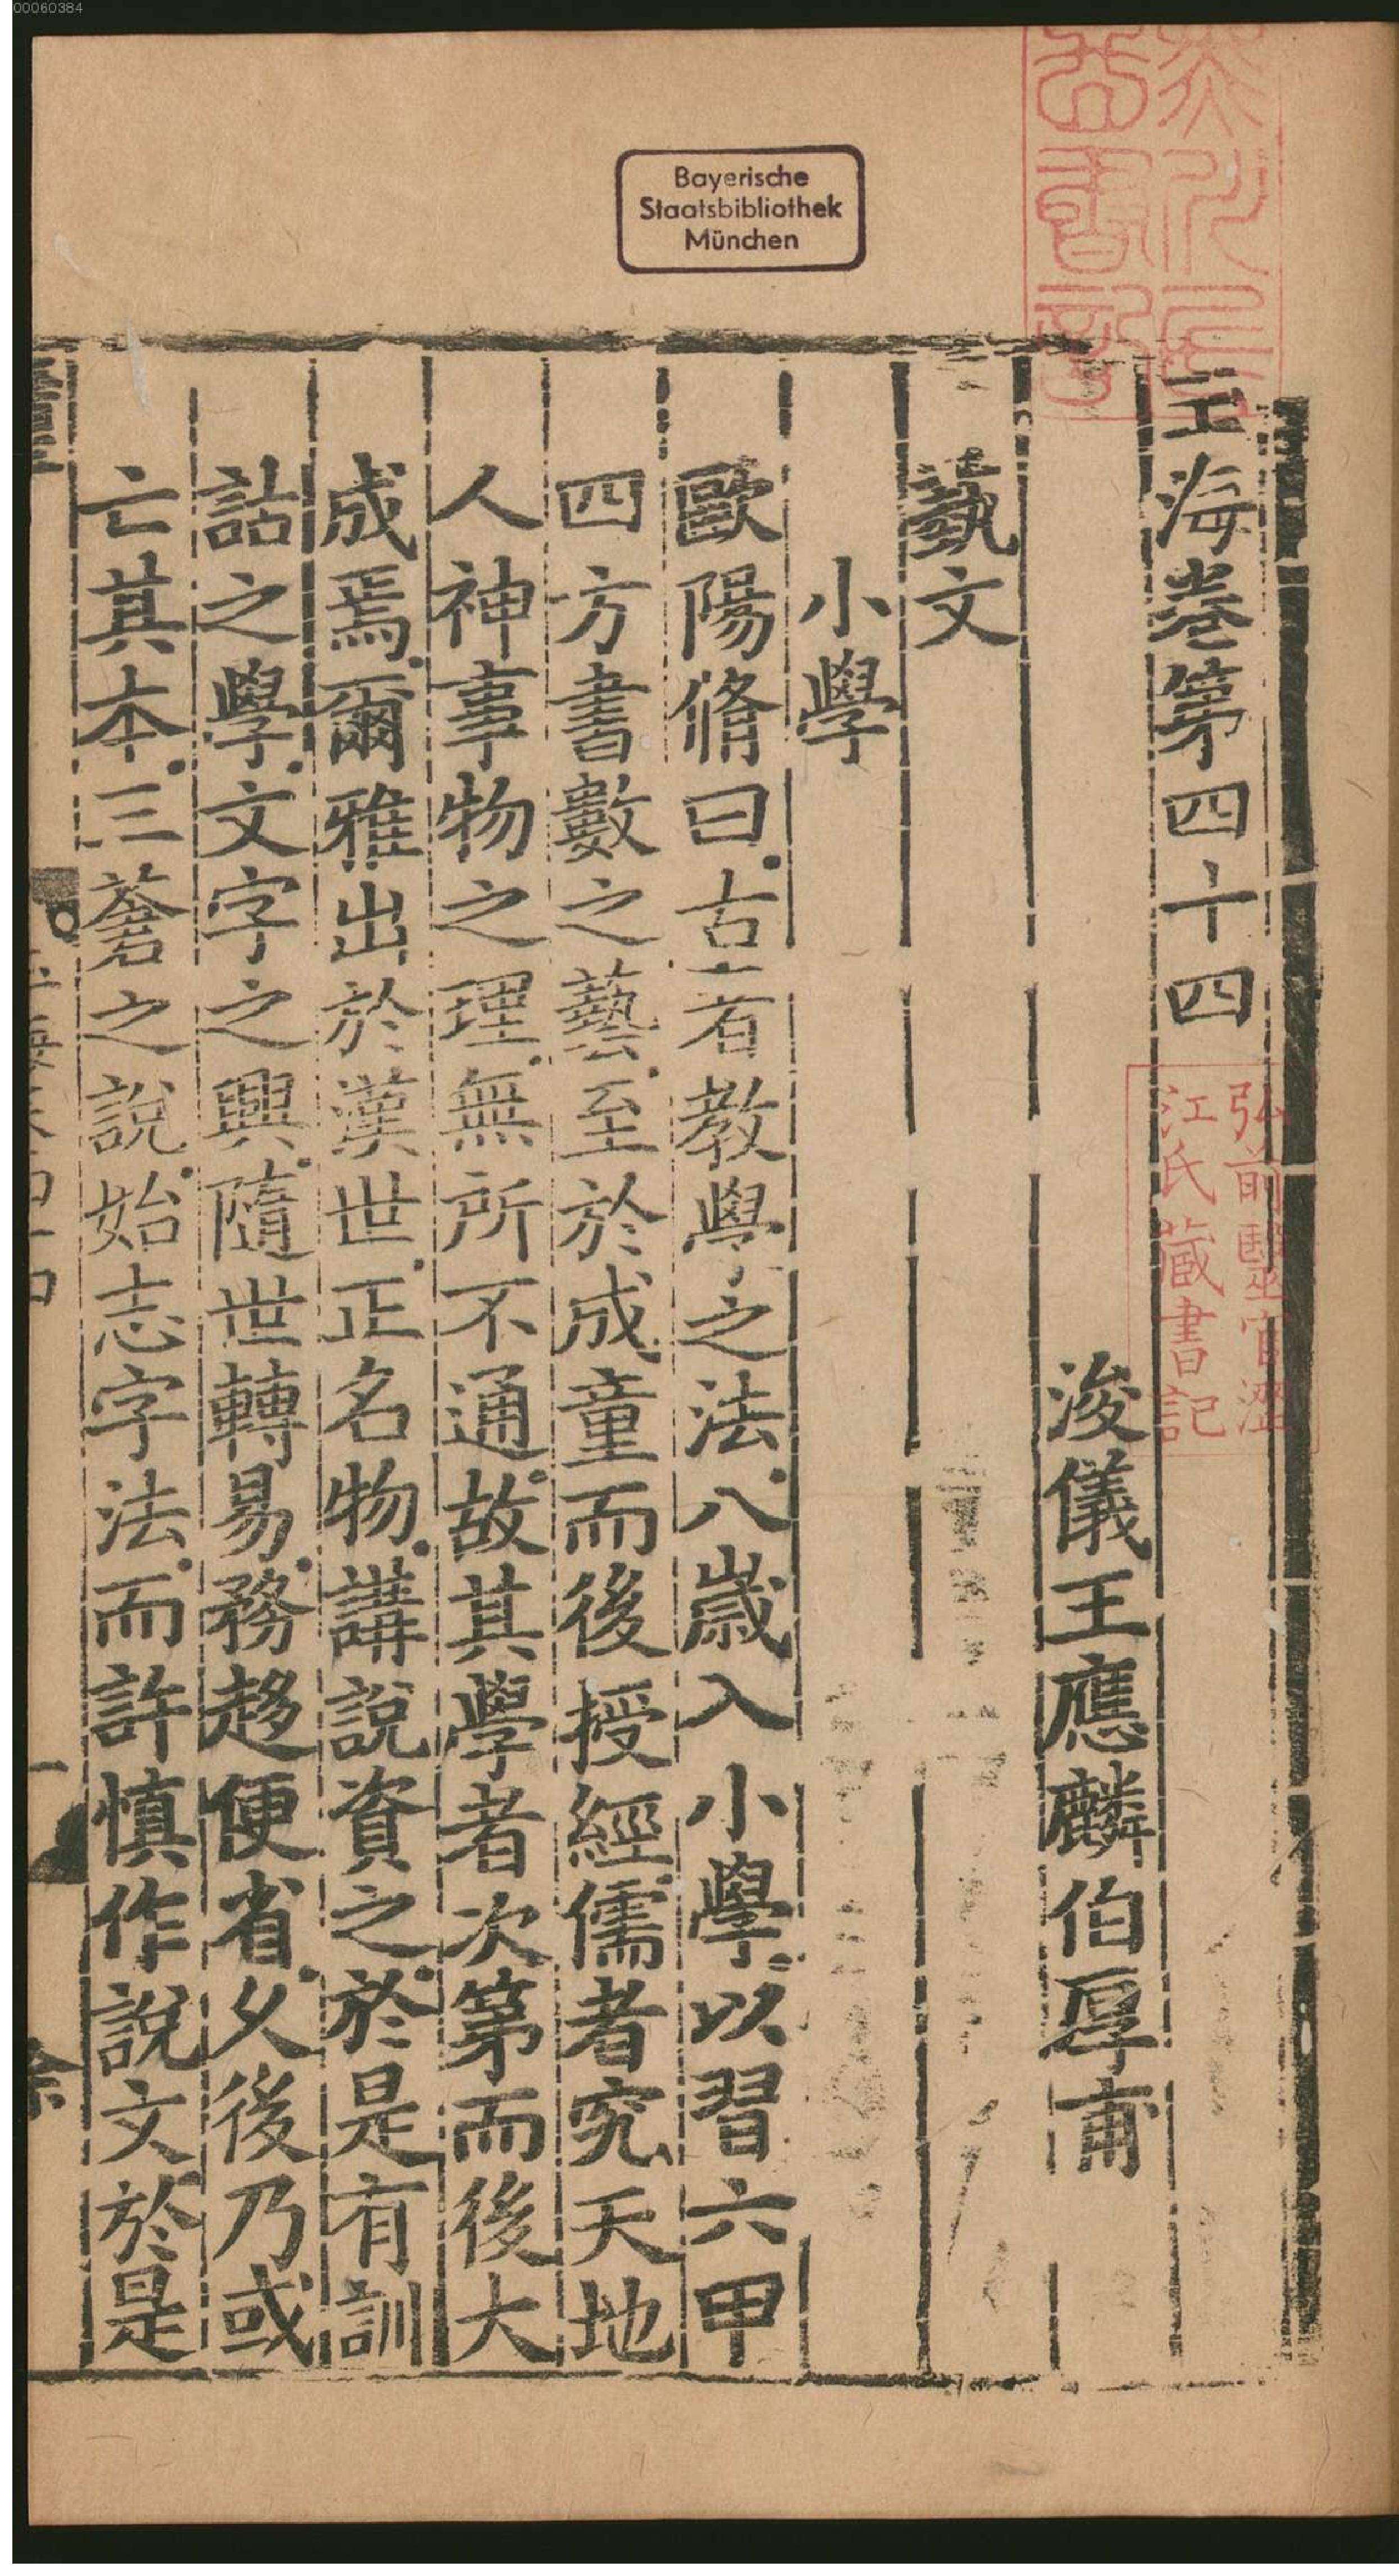 00060384
Bayerische
Staatsbibliothek
München
玉海卷第四十四
弘前醫官澀
江氏藏書記
浚儀王應麟伯厚甫
藝文
小學
歐陽脩曰古者教學之法八歲入小學以習六甲
四方書數之藝至於成童而後授經儒者究天地
人神事物之理無所不通故其學者次第而後大
成焉爾雅出於漢世正名物講說資之於是有訓
詁之學文字之興隨世轉易務趍便省久後乃或
亡其本三蒼之說始志字法而許慎作說文於是